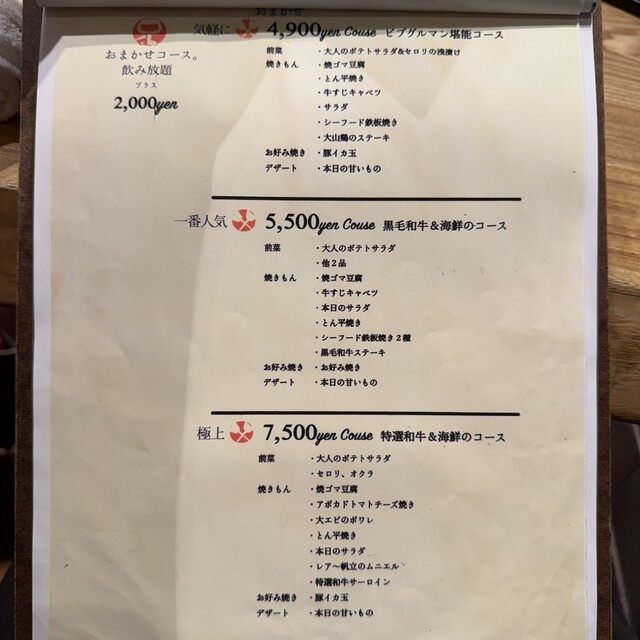 おまかせ
気軽に 4,900yen Couse ビブグルマン堪能コース
おまかせコース。
飲み放題
プラス
2,000yen
前菜 ・大人のポテトサラダ&セロリの浅漬け
焼きもん ・焼ゴマ豆腐
・とん平焼き
・牛すじキャベツ
・サラダ
・シーフード鉄板焼き
・大山鶏のステーキ
お好み焼き ・豚イカ玉
デザート ・本日の甘いもの
一番人気 5,500yen Couse 黒毛和牛&海鮮のコース
前菜 ・大人のポテトサラダ
・他2品
焼きもん ・焼ゴマ豆腐
・牛すじキャベツ
・本日のサラダ
・とん平焼き
・シーフード鉄板焼き2種
・黒毛和牛ステーキ
お好み焼き ・お好み焼き
デザート ・本日の甘いもの
極上 7,500yen Couse 特選和牛&海鮮のコース
前菜 ・大人のポテトサラダ
・セロリ、オクラ
焼きもん ・焼ゴマ豆腐
・アボカドトマトチーズ焼き
・大エビのポワレ
・とん平焼き
・本日のサラダ
・レア〜帆立のムニエル
・特選和牛サーロイン
お好み焼き ・豚イカ玉
デザート ・本日の甘いもの